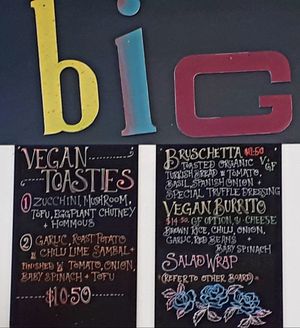 biG
VEGAN
TOASTIES
1 ZUCCHINI, MUSHROOM,
TOFU, EGGPLANT CHUTNEY
+ HOMMOUS
2 GARLIC, ROAST POTATO
CHILLI LIME SAMBAL +
FINISHED W TOMATO, ONION,
BABY SPINACH + TOFU
$10.50
BRUSCHETTA $10.50
TOASTED ORGANIC V GF
TURKISH BREAD TOMATO,
BASIL, SPANISH ONION +
SPECIAL TRUFFLE DRESSING
VEGAN BURRITO
$14.50 GF OPTION, CHEESE
BROWN RICE, CHILLI, ONION,
GARLIC, RED BEANS +
BABY SPINACH
SALAD WRAP
(REFER TO OTHER BOARD)